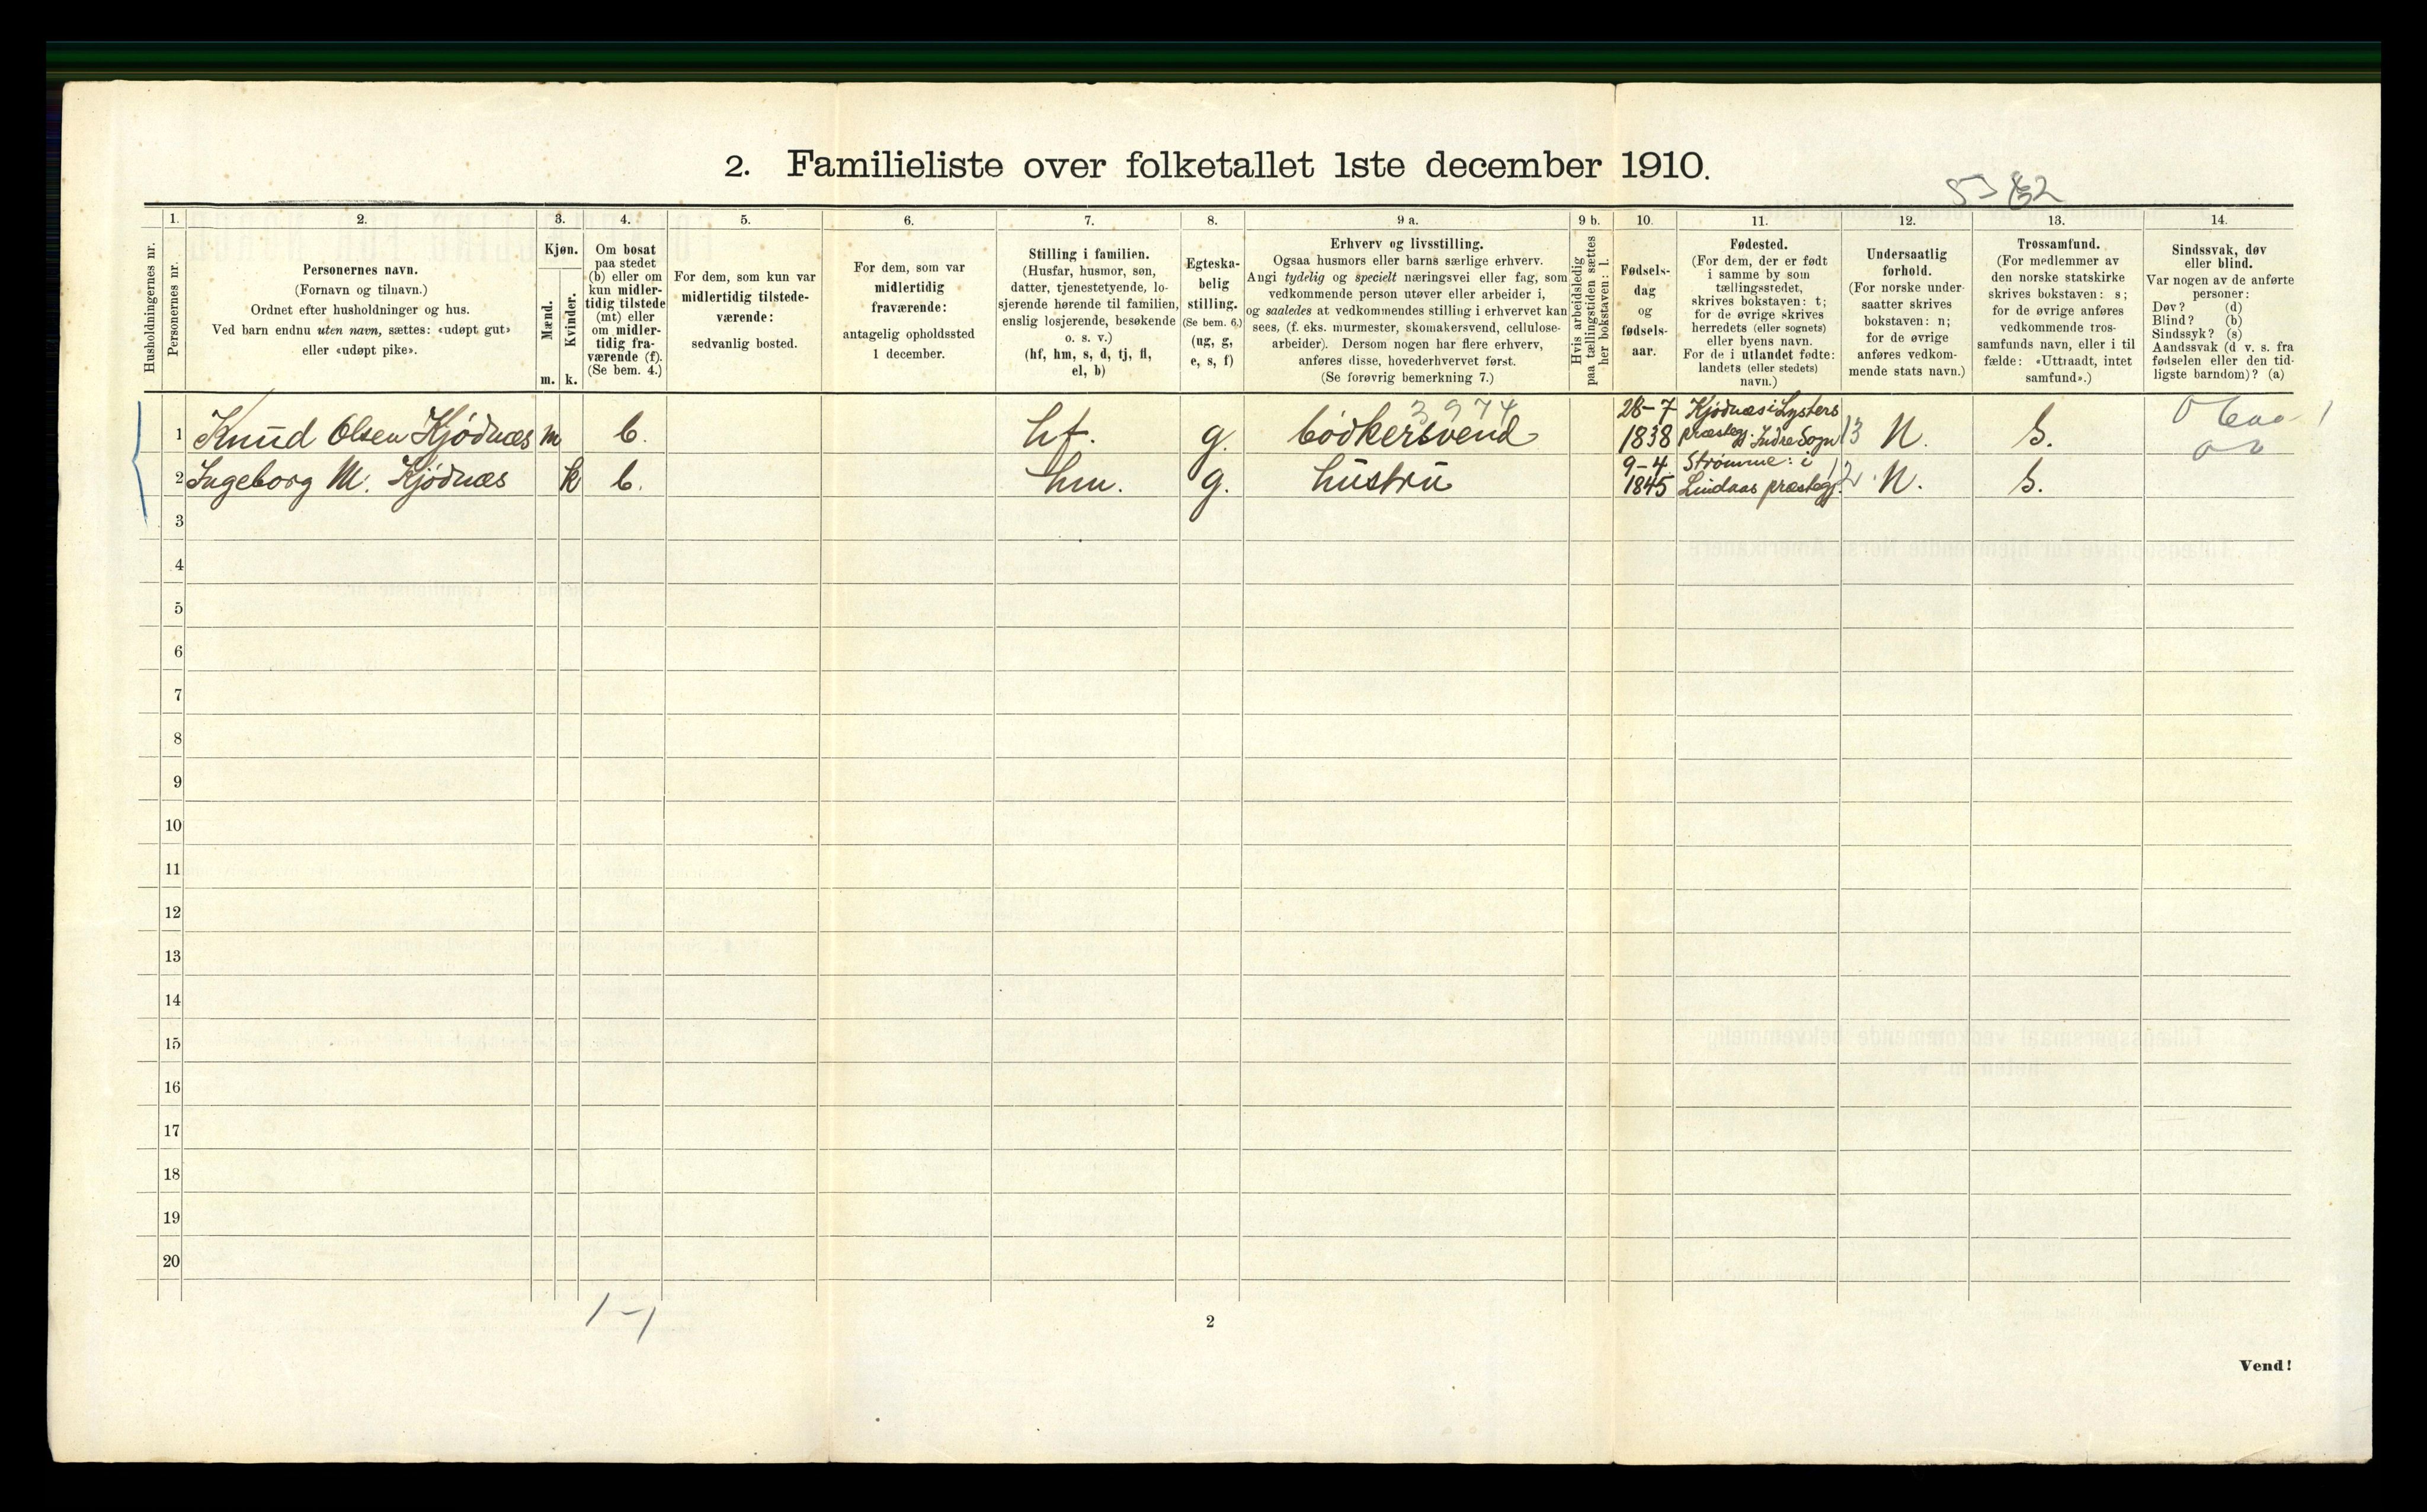 2. Familieliste over folketallet 1ste december 1910.
Husholdningernes nr.
1.
Personernes nr.
2.
Personernes navn.
(Fornavn og tilnavn.)
Ordnet efter husholdninger og hus.
Ved barn endnu uten navn, sættes: «udøpt gut»
eller «udøpt pike».
3.
Kjøn.
Mænd.
Kvinder.
m. k.
4.
Om bosat
paa stedet
(b) eller om
kun midler-
tidig tilstede
(mt) eller
om midler-
tidig fra-
værende (f).
(Se bem. 4.)
5.
For dem, som kun var
midlertidig tilstede-
værende:
sedvanlig bosted.
6.
For dem, som var
midlertidig
fraværende:
antagelig opholdssted
1 december.
7.
Stilling i familien.
(Husfar, husmor, søn,
datter, tjenestetyende, lo-
sjerende hørende til familien,
enslig losjerende, besøkende
o. s. v.)
(hf, hm, s, d, tj, fl,
el, b)
8.
Egteska-
belig
stilling.
(Se bem. 6.)
(ug, g,
e, s, f)
9 a.
Erhverv og livsstilling.
Ogsaa husmors eller barns særlige erhverv.
Angi tydelig og specielt næringsvei eller fag, som
vedkommende person utøver eller arbeider i,
og saaledes at vedkommendes stilling i erhvervet kan
sees, (f. eks. murmester, skomakersvend, cellulose-
arbeider). Dersom nogen har flere erhverv,
anføres disse, hovederhvervet først.
(Se forøvrig bemerkning 7.)
9 b.
Hvis arbeidsledig
paa tællingstiden sættes
her bokstaven: l.
10.
Fødsels-
dag
og
fødsels-
aar.
11.
Fødested.
(For dem, der er født
i samme by som
tællingsstedet,
skrives bokstaven: t;
for de øvrige skrives
herredets (eller sognets)
eller byens navn.
For de i utlandet fødte:
landets (eller stedets)
navn.)
12.
Undersaatlig
forhold.
(For norske under-
saatter skrives
bokstaven: n;
for de øvrige
anføres vedkom-
mende stats navn.)
13.
Trossamfund.
(For medlemmer av
den norske statskirke
skrives bokstaven: s;
for de øvrige anføres
vedkommende tros-
samfunds navn, eller i til
fælde: «Uttraadt, intet
samfund».)
14.
Sindssvak, døv
eller blind.
Var nogen av de anførte
personer:
Døv? (d)
Blind? (b)
Sindssyk? (s)
Aandssvak (d v. s. fra
fødselen eller den tid-
ligste barndom)? (a)
3974
1 Knud Olsen Kjødnæs m b. hf. g. bødkersvend 28-7 1838 Kjødnæs i Lysters præsteg. Indre Sogn 13 N. S.
2 Ingeborg M. Kjødnæs k b. hm. g. hustru 9-4. 1845 Strømme: i Lindaas præstegj. 12 N. S.
3
4
5
6
7
8
9
10
11
12
13
14
15
16
17
18
19
20
1-1
2
Vend!